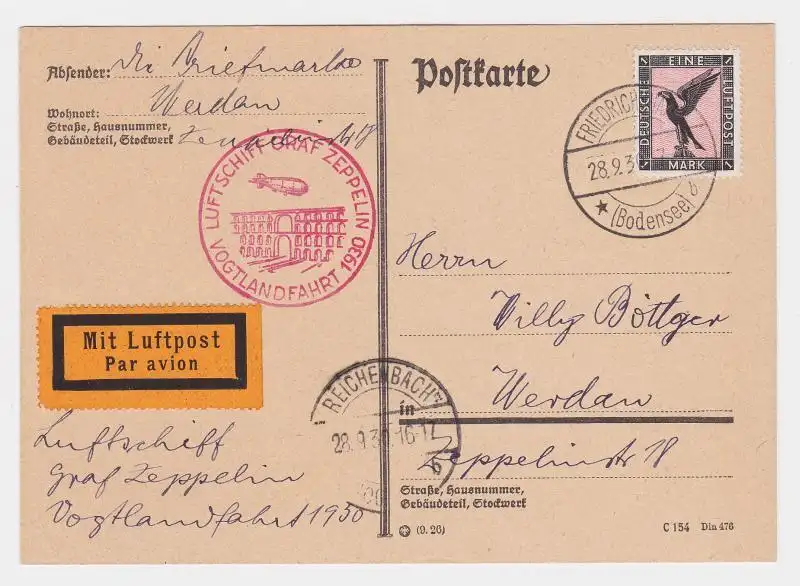 Absender: die Briefmarke
Wohnort: Werdau
Straße, Hausnummer,
Gebäudeteil, Stockwerk 18
Postkarte
EINE
DEUTSCHE
LUFTPOST
1 MARK 1
FRIEDRICH
28.9.3
★ (Bodensee) b
LUFTSCHIFF GRAF ZEPPELIN
VOGTLANDFAHRT 1930
Mit Luftpost
Par avion
Herrn
Willy Böttger
Werdau
in
Zeppelinstr 18
Straße, Hausnummer,
Gebäudeteil, Stockwerk
REICHENBACH
28.9.30.16-17
b
Luftschiff
Graf Zeppelin
Vogtlandfahrt 1930
(9. 26)
C 154 Din 476